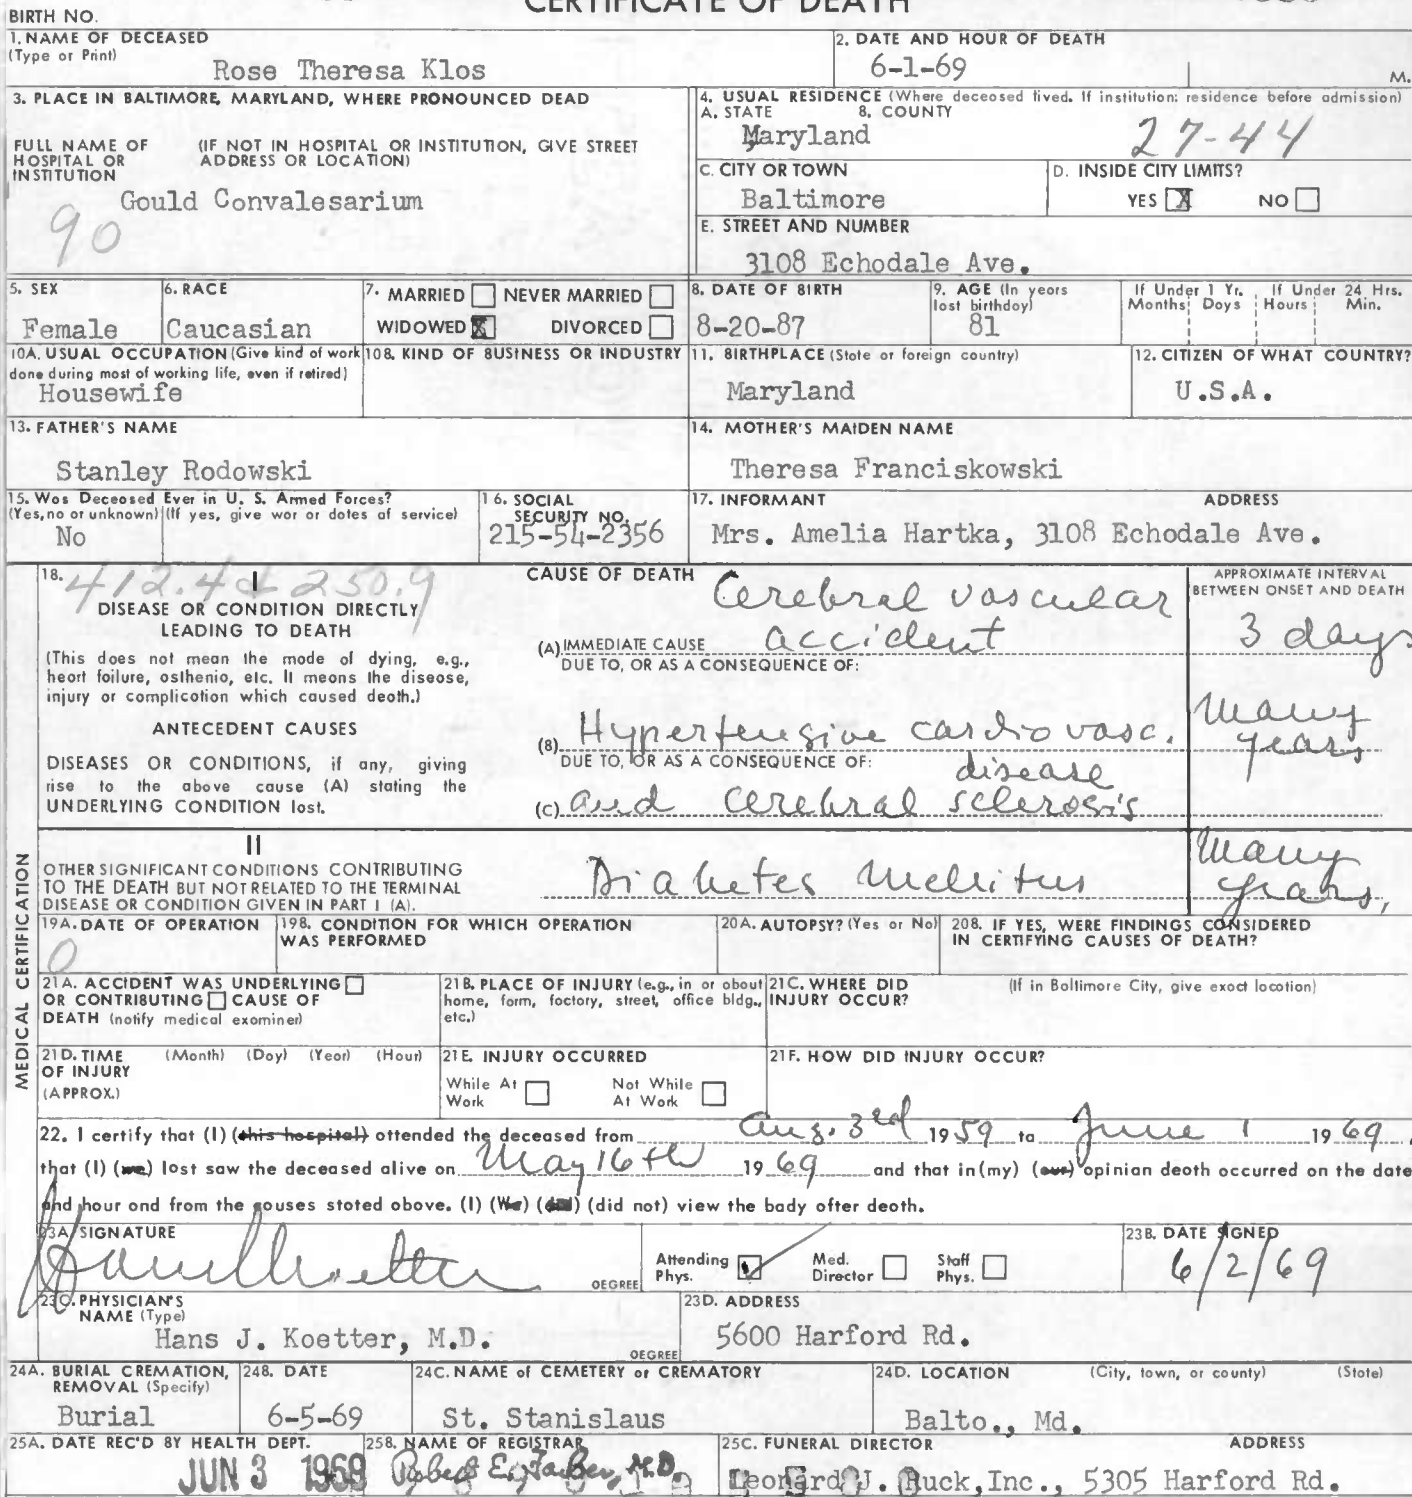 CERTIFICATE OF DEATH
BIRTH NO.
1. NAME OF DECEASED
(Type or Print)
Rose Theresa Klos
2. DATE AND HOUR OF DEATH
6-1-69
M.
3. PLACE IN BALTIMORE, MARYLAND, WHERE PRONOUNCED DEAD
FULL NAME OF HOSPITAL OR INSTITUTION
(IF NOT IN HOSPITAL OR INSTITUTION, GIVE STREET ADDRESS OR LOCATION)
Gould Convalesarium
90
4. USUAL RESIDENCE (Where deceosed lived. If institution: residence before admission)
A. STATE
8. COUNTY
Maryland
27-44
C. CITY OR TOWN
Baltimore
D. INSIDE CITY LIMITS?
YES X NO
E. STREET AND NUMBER
3108 Echodale Ave.
5. SEX
Female
6. RACE
Caucasian
7. MARRIED NEVER MARRIED
WIDOWED X DIVORCED
8. DATE OF BIRTH
8-20-87
9. AGE (In yeors lost birthdoy)
81
If Under 1 Yr. Months Doys
If Under 24 Hrs. Hours Min.
10A. USUAL OCCUPATION (Give kind of work done during most of working life, even if retired)
Housewife
10B. KIND OF BUSINESS OR INDUSTRY
11. BIRTHPLACE (Stote or foreign country)
Maryland
12. CITIZEN OF WHAT COUNTRY?
U.S.A.
13. FATHER'S NAME
Stanley Rodowski
14. MOTHER'S MAIDEN NAME
Theresa Franciskowski
15. Wos Deceosed Ever in U. S. Armed Forces?
(Yes, no or unknown) (If yes, give wor or dotes of service)
No
16. SOCIAL SECURITY NO.
215-54-2356
17. INFORMANT ADDRESS
Mrs. Amelia Hartka, 3108 Echodale Ave.
MEDICAL CERTIFICATION
18. 412.4 & 250.9
I
DISEASE OR CONDITION DIRECTLY
LEADING TO DEATH
(This does not mean the mode of dying, e.g.,
heort foilure, osthenio, etc. It meons the diseose,
injury or complicotion which coused deoth.)
ANTECEDENT CAUSES
DISEASES OR CONDITIONS, if any, giving
rise to the above cause (A) stoting the
UNDERLYING CONDITION lost.
CAUSE OF DEATH
Cerebral vascular
(A) IMMEDIATE CAUSE accident
DUE TO, OR AS A CONSEQUENCE OF:
(B) Hypertensive cardiovasc.
DUE TO, OR AS A CONSEQUENCE OF: disease
(C) and cerebral sclerosis
APPROXIMATE INTERVAL
BETWEEN ONSET AND DEATH
3 days
Many
years
II
OTHER SIGNIFICANT CONDITIONS CONTRIBUTING
TO THE DEATH BUT NOT RELATED TO THE TERMINAL
DISEASE OR CONDITION GIVEN IN PART I (A).
Diabetes Mellitus
Many
years,
19A. DATE OF OPERATION
0
19B. CONDITION FOR WHICH OPERATION WAS PERFORMED
20A. AUTOPSY? (Yes or No)
20B. IF YES, WERE FINDINGS CONSIDERED IN CERTIFYING CAUSES OF DEATH?
21A. ACCIDENT WAS UNDERLYING
OR CONTRIBUTING CAUSE OF
DEATH (notify medical exominer)
21B. PLACE OF INJURY (e.g., in or obout home, form, foctory, street, office bldg., etc.)
21C. WHERE DID INJURY OCCUR?
(If in Boltimore City, give exoct locotion)
21D. TIME OF INJURY (APPROX.)
(Month) (Doy) (Yeor) (Hour)
21E. INJURY OCCURRED
While At Work
Not While At Work
21F. HOW DID INJURY OCCUR?
22. I certify that (I) (this hospital) ottended the deceased from Aug. 3rd 1959 to June 1 1969,
that (I) (we) lost saw the deceased alive on May 16th 1969 and that in (my) (our) opinian deoth occurred on the date
and hour ond from the couses stoted obove. (I) (We) (did) (did not) view the bady ofter deoth.
23A. SIGNATURE
Hans J Koetter
DEGREE
Attending Phys.
Med. Director
Stoff Phys.
23B. DATE SIGNED
6/2/69
23C. PHYSICIAN'S NAME (Type)
Hans J. Koetter, M.D.
DEGREE
23D. ADDRESS
5600 Harford Rd.
24A. BURIAL CREMATION, REMOVAL (Specify)
Burial
24B. DATE
6-5-69
24C. NAME of CEMETERY or CREMATORY
St. Stanislaus
24D. LOCATION (City, town, or county) (State)
Balto., Md.
25A. DATE REC'D BY HEALTH DEPT.
JUN 3 1969
25B. NAME OF REGISTRAR
Robert E. Farber, M.D.
25C. FUNERAL DIRECTOR ADDRESS
Leonard J. Ruck, Inc., 5305 Harford Rd.